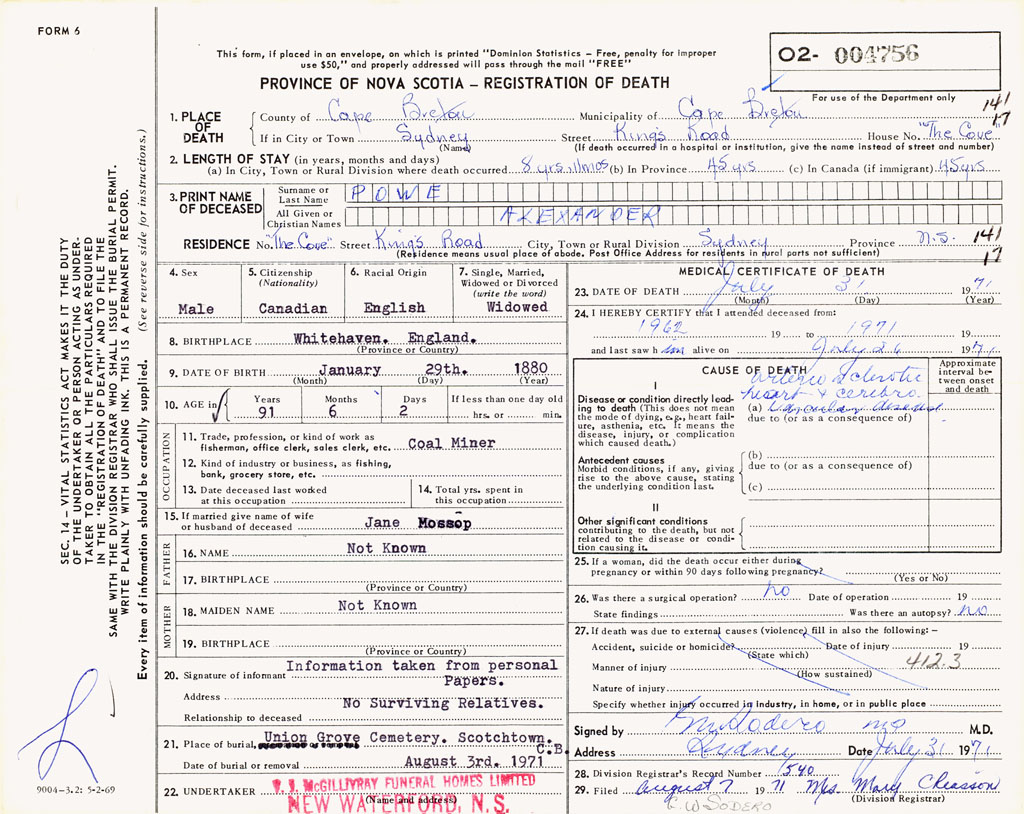 FORM 6
This form, if placed in an envelope, on which is printed "Dominion Statistics – Free, penalty for improper
use $50," and properly addressed will pass through the mail "FREE"
PROVINCE OF NOVA SCOTIA – REGISTRATION OF DEATH
02- 004756
For use of the Department only
141
17
1. PLACE OF DEATH
County of Cape Breton Municipality of Cape Breton
If in City or Town Sydney Street King's Road House No. "The Cove"
(Name) (If death occurred in a hospital or institution, give the name instead of street and number)
2. LENGTH OF STAY (in years, months and days)
(a) In City, Town or Rural Division where death occurred 8 yrs. 11 mos (b) In Province 45 yrs (c) In Canada (if immigrant) 45 yrs
3. PRINT NAME OF DECEASED
Surname or Last Name POWE
All Given or Christian Names ALEXANDER
RESIDENCE No. "The Cove" Street King's Road City, Town or Rural Division Sydney Province N.S. 141
(Residence means usual place of abode. Post Office Address for residents in rural parts not sufficient) 17
4. Sex
Male
5. Citizenship
(Nationality)
Canadian
6. Racial Origin
English
7. Single, Married,
Widowed or Divorced
(write the word)
Widowed
8. BIRTHPLACE Whitehaven. England.
(Province or Country)
9. DATE OF BIRTH January 29th. 1880
(Month) (Day) (Year)
10. AGE in Years Months Days If less than one day old
91 6 2 hrs. or min.
OCCUPATION
11. Trade, profession, or kind of work as
fisherman, office clerk, sales clerk, etc. Coal Miner
12. Kind of industry or business, as fishing,
bank, grocery store, etc.
13. Date deceased last worked
at this occupation
14. Total yrs. spent in
this occupation
15. If married give name of wife
or husband of deceased Jane Mossop
FATHER
16. NAME Not Known
17. BIRTHPLACE
(Province or Country)
MOTHER
18. MAIDEN NAME Not Known
19. BIRTHPLACE
(Province or Country)
20. Signature of informant Information taken from personal
Papers.
Address No Surviving Relatives.
Relationship to deceased
21. Place of burial, Union Grove Cemetery. Scotchtown.
C.B.
Date of burial or removal August 3rd. 1971
22. UNDERTAKER McGILLIVRAY FUNERAL HOMES LIMITED
(Name and address)
NEW WATERFORD, N. S.
MEDICAL CERTIFICATE OF DEATH
23. DATE OF DEATH July 31 1971
(Month) (Day) (Year)
24. I HEREBY CERTIFY that I attended deceased from:
1962 19 to 1971 19
and last saw him alive on July 26 1971
CAUSE OF DEATH
Approximate
interval be-
tween onset
and death
I
Disease or condition directly lead-
ing to death (This does not mean
the mode of dying, e.g., heart fail-
ure, asthenia, etc. It means the
disease, injury, or complication
which caused death.)
arterio sclerotic
heart + cerebro
(a) vascular disease
due to (or as a consequence of)
Antecedent causes
Morbid conditions, if any, giving
rise to the above cause, stating
the underlying condition last.
(b)
due to (or as a consequence of)
(c)
II
Other significant conditions
contributing to the death, but not
related to the disease or condi-
tion causing it.
25. If a woman, did the death occur either during
pregnancy or within 90 days following pregnancy?
(Yes or No)
26. Was there a surgical operation? no Date of operation 19
State findings Was there an autopsy? no
27. If death was due to external causes (violence) fill in also the following: –
Accident, suicide or homicide? Date of injury 19
(State which)
412.3
Manner of injury
(How sustained)
Nature of injury
Specify whether injury occurred in Industry, in home, or in public place
Signed by Sodero MD M.D.
Address Sydney Date July 31 1971
28. Division Registrar's Record Number 540
29. Filed August 7 1971 Mrs Mary Chiasson
(Division Registrar)
C.W SODERO
SEC. 14 – VITAL STATISTICS ACT MAKES IT THE DUTY
OF THE UNDERTAKER OR PERSON ACTING AS UNDER-
TAKER TO OBTAIN ALL THE PARTICULARS REQUIRED
IN THE "REGISTRATION OF DEATH" AND TO FILE THE
SAME WITH THE DIVISION REGISTRAR WHO SHALL ISSUE THE BURIAL PERMIT.
WRITE PLAINLY WITH UNFADING INK. THIS IS A PERMANENT RECORD.
Every item of information should be carefully supplied. (See reverse side for instructions.)
9004-3.2: 5-2-69